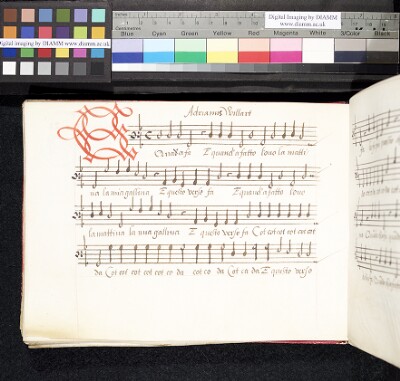 Digital Imaging by DIAMM
www.diamm.ac.uk
Digital Imaging by DIAMM
www.diamm.ac.uk
Centimetres
Blue Cyan Green Yellow Red Magenta White 3/Color Black
Adrianus Willart
E quand a fatto l'ovo la matti
na la mia gallina E questo verso fa E quand a fatto l'ovo
la mattina la mia gallina E questo verso fa Cot cot cot cot cot cot
da Cot cot cot cot cot co da cot co da Cot ca da E questo verso